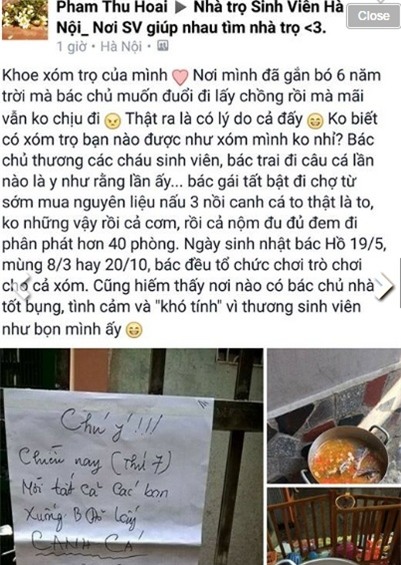 Pham Thu Hoai ▶ Nhà trọ Sinh Viên Hà
Close
Nội_ Nơi SV giúp nhau tìm nhà trọ <3.
1 giờ · Hà Nội ·
Khoe xóm trọ của mình ❤ Nơi mình đã gắn bó 6 năm
trời mà bác chủ muốn đuổi đi lấy chồng rồi mà mãi
vẫn ko chịu đi 😠 Thật ra là có lý do cả đấy 😄 Ko biết
có xóm trọ bạn nào được như xóm mình ko nhỉ? Bác
chủ thương các cháu sinh viên, bác trai đi câu cá lần
nào là y như rằng lần ấy... bác gái tất bật đi chợ từ
sớm mua nguyên liệu nấu 3 nồi canh cá to thật là to,
ko những vậy rồi cả cơm, rồi cả nộm đu đủ đem đi
phân phát hơn 40 phòng. Ngày sinh nhật bác Hồ 19/5,
mùng 8/3 hay 20/10, bác đều tổ chức chơi trò chơi
cho cả xóm. Cũng hiếm thấy nơi nào có bác chủ nhà
tốt bụng, tình cảm và "khó tính" vì thương sinh viên
như bọn mình ấy 😄
Chú ý!!!
Chiều nay (Thứ 7)
Mời tất cả các bạn
Xuống B Đỗ lấy
CANH CÁ